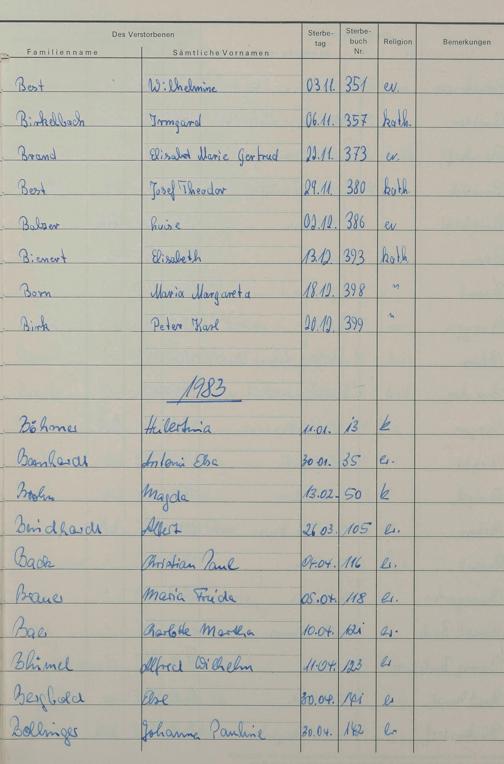 Des Verstorbenen Sterbe- Sterbe-
Familienname Sämtliche Vornamen tag buch Nr. Religion Bemerkungen
Best Wilhelmine 03.11. 351 ev.
Birkelbach Irmgard 06.11. 357 kath.
Brand Elisabet Marie Gertrud 23.11. 373 ev.
Best Josef Theodor 29.11. 380 kath.
Balzer Luise 02.12. 386 ev
Bienert Elisabeth 13.12. 393 kath
Born Maria Margareta 18.12. 398 "
Birk Peter Karl 20.12. 399 "
1983
Böhmer 11.01. 13 k
Bernhardt Antonie Elsa 30.01. 35 ev.
Magda 13.02. 50 k
Albert 26.03. 105 ev.
Christian Paul 04.04. 116 ev.
Maria Frieda 05.04. 118 ev.
Charlotte Martha 10.04. 121 ev.
Blümel Alfred Wilhelm 11.04. 123 ev
Bergbold Else 30.04. 141 ev
Bollinger Johanna Pauline 30.04. 142 ev.